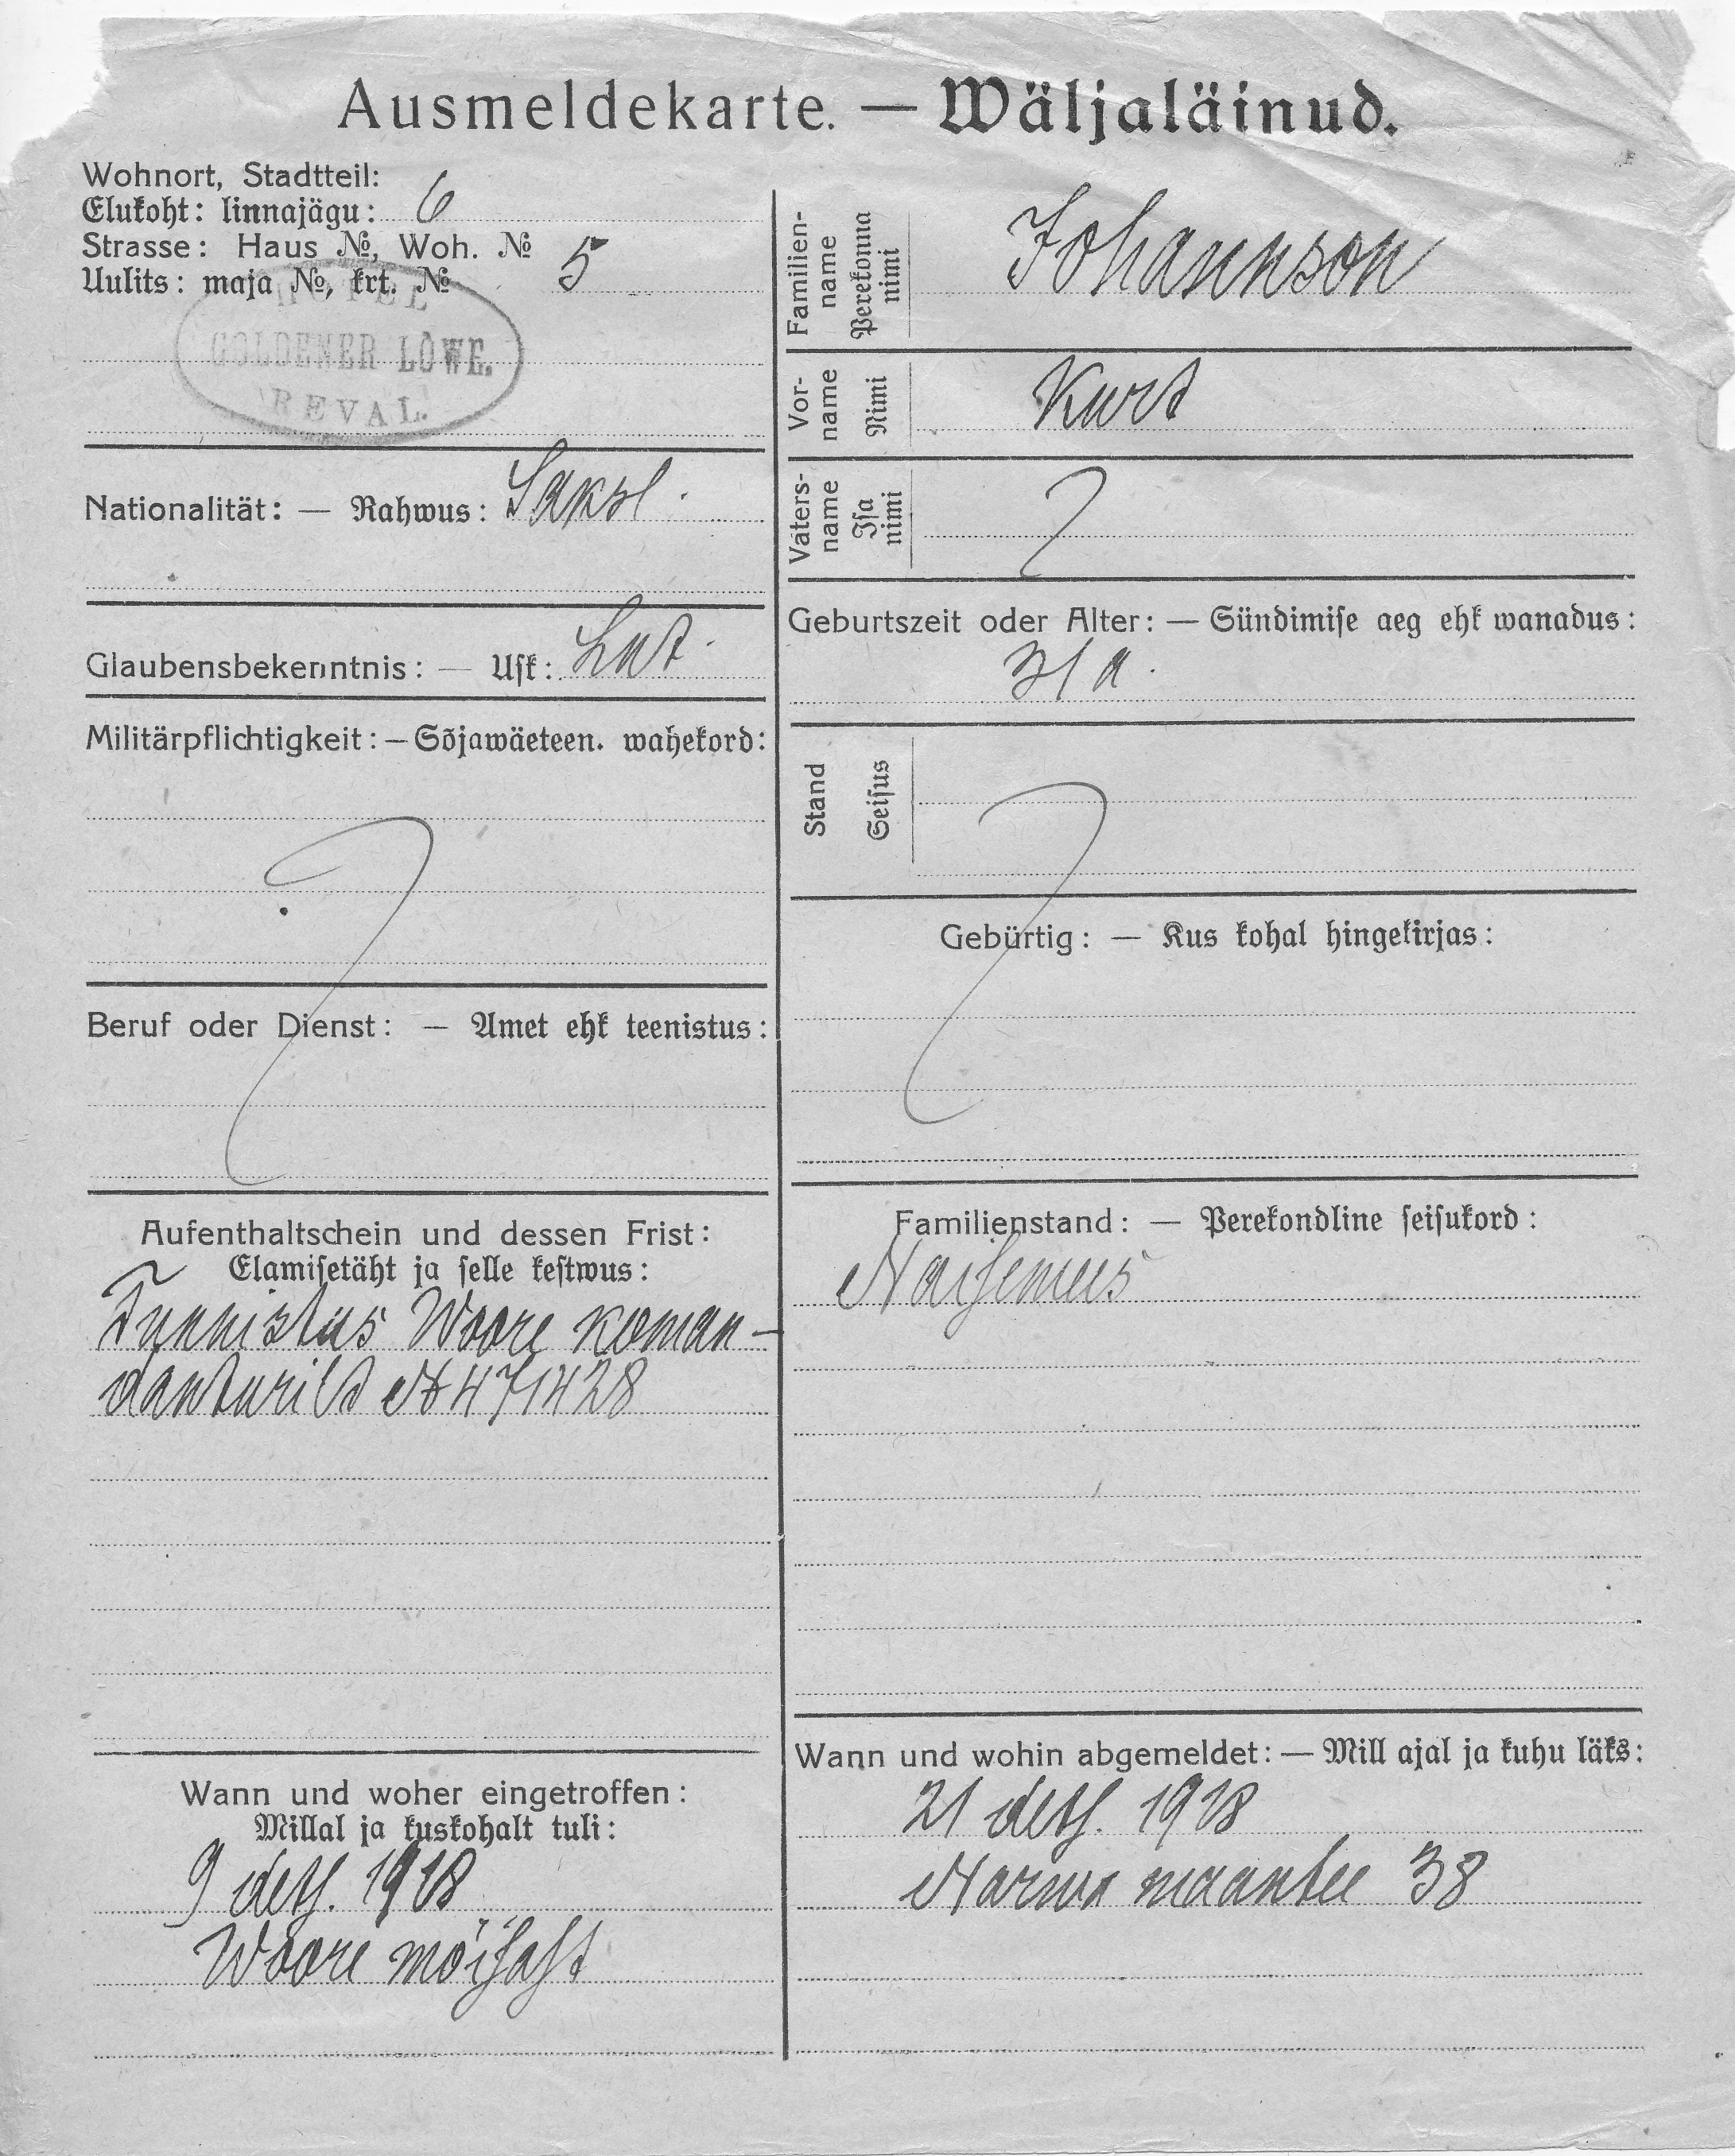 Ausmeldekarte. — Wäljaläinud.
Wohnort, Stadtteil:
Elukoht: linnajägu: 6
Strasse: Haus №, Woh. №
Uulits: maja №, krt. № 5
HOTEL
GOLDENER LÖWE.
REVAL.
Nationalität: — Rahwus: Saksl.
Glaubensbekenntnis: — Usk: Lut.
Militärpflichtigkeit: — Sõjawäeteen. wahekord:
Beruf oder Dienst: — Amet ehk teenistus:
Aufenthaltschein und dessen Frist:
Elamisetäht ja selle kestwus:
Tunnistus Woore koman-
danturilt № 471428
Wann und woher eingetroffen:
Millal ja kuskohalt tuli:
9 dets. 1918
Woore mõisast
Familien-
name
Perekonna
nimi
Johannson
Vor-
name
Nimi
Kurt
Vaters-
name
Isa
nimi
Geburtszeit oder Alter: — Sündimise aeg ehk wanadus:
31 a.
Stand
Seisus
Gebürtig: — Kus kohal hingekirjas:
Familienstand: — Perekondline seisukord:
Naisemees
Wann und wohin abgemeldet: — Mill ajal ja kuhu läks:
21 dets. 1918
Narwa maantee 38